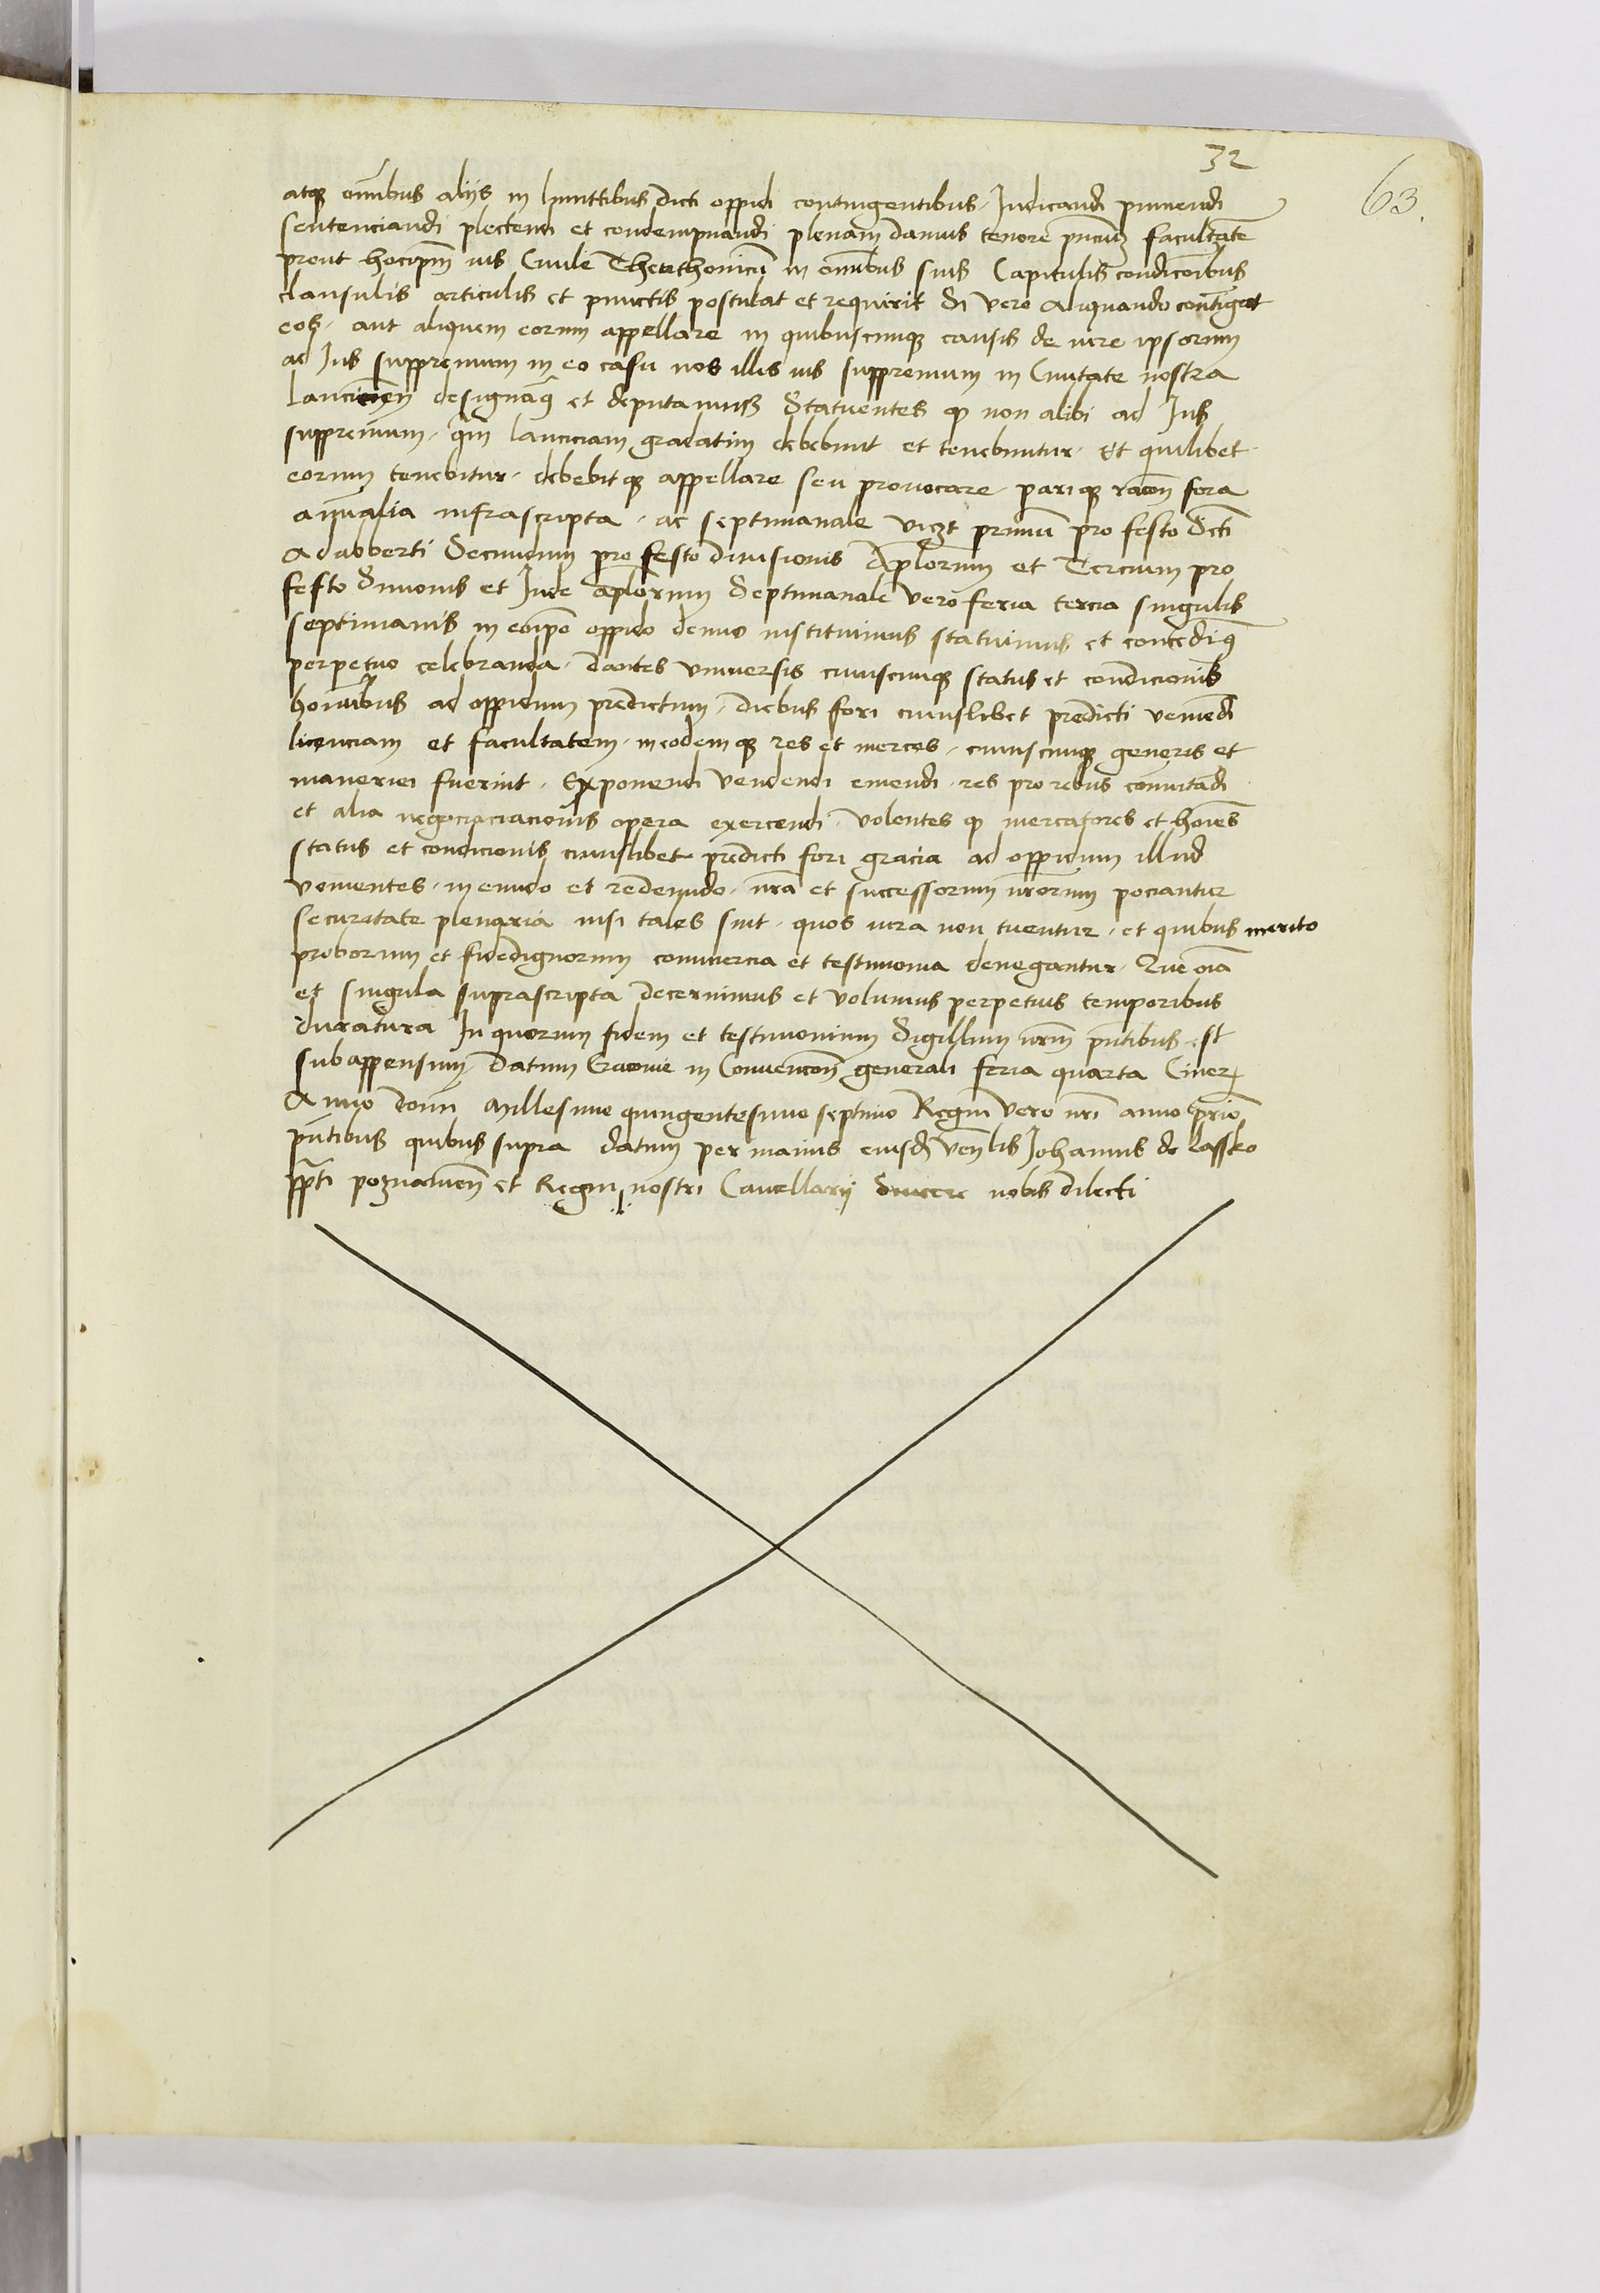 32
63.
atq̃ om̃ibus alijs in limittibus dicti oppidi contingentibus Iudicandi puniendi
sentenciandi plectendi et condempnandi plenam damus tenore pñcium facultatẽ
prout hocipm̃ ius Ciuile Thewthonicũ in om̃ibus suis Capitulis condicõibus
clausulis articulis et punctis postulat et requirit Si vero Aliquando contigerit
eos aut aliquem eorum appellare in quibuscunq̃ causis de iure ipsorum
ad Ius suppremum in eo casu nos illis ius suppremum in Ciuitate nostra
Lancicieñ designam9 et deputamus Statuentes q̃ non alibi ad Ius
suppremum q̃m lanciciam gradatim debebunt et tenebuntur Et quilibet
eorum tenebitur debebitq̃ appellare seu prouocare pariq̃ racõe fora
annalia infrascripta ac septimanale vicz̃t primũ pro festo Scti
Adalberti Secundum pro festo diuisionis Aplorum et Tercium pro
festo Simonis et Iude aplorum Septimanale vero feria tercia singulis
septimanis in eoip̃o oppido denuo instituimus statuimus et concedim9
perpetuo celebranda dantes vniuersis cuiuscunq̃ status et condicionis
hom̃ibus ad oppidum predictum diebus fori cuiuslibet predicti veniẽdi
licenciam et facultatem ineodemq̃ res et merces cuiuscunq̃ generis et
maneriei fuerint Exponendi vendendi emendi res pro rebus cõmutãdi
et alia negociaciacionis opera exercendi volentes q̃ mercatores et hoĩes
status et condicionis cuiuslibet predicti fori gracia ad oppidum illud
venientes in eundo et redeundo nrã et successorum nrõrum pociantur
securitate plenaria nisi tales sint quos iura non tuentur et quibus merito
proborum et fidedignorum commercia et testimonia denegantur Que oĩa
et singula suprascripta decernimus et volumus perpetuis temporibus
duratura In quorum fidem et testimonium Sigillum nrm̃ pñtibus est
subappensum Datum Cracouie in Conuencõe generali feria quarta Cinerũ
Anno domĩ Millesimo quingentesimo septimo Regni vero nrĩ anno prĩo
pñtibus quibus supra datum per manus eiusd̃ veñlis Johannis de Lassko
pp̃ti poznanieñ et Regni nostri Cancellarij Sincere nobis dilecti